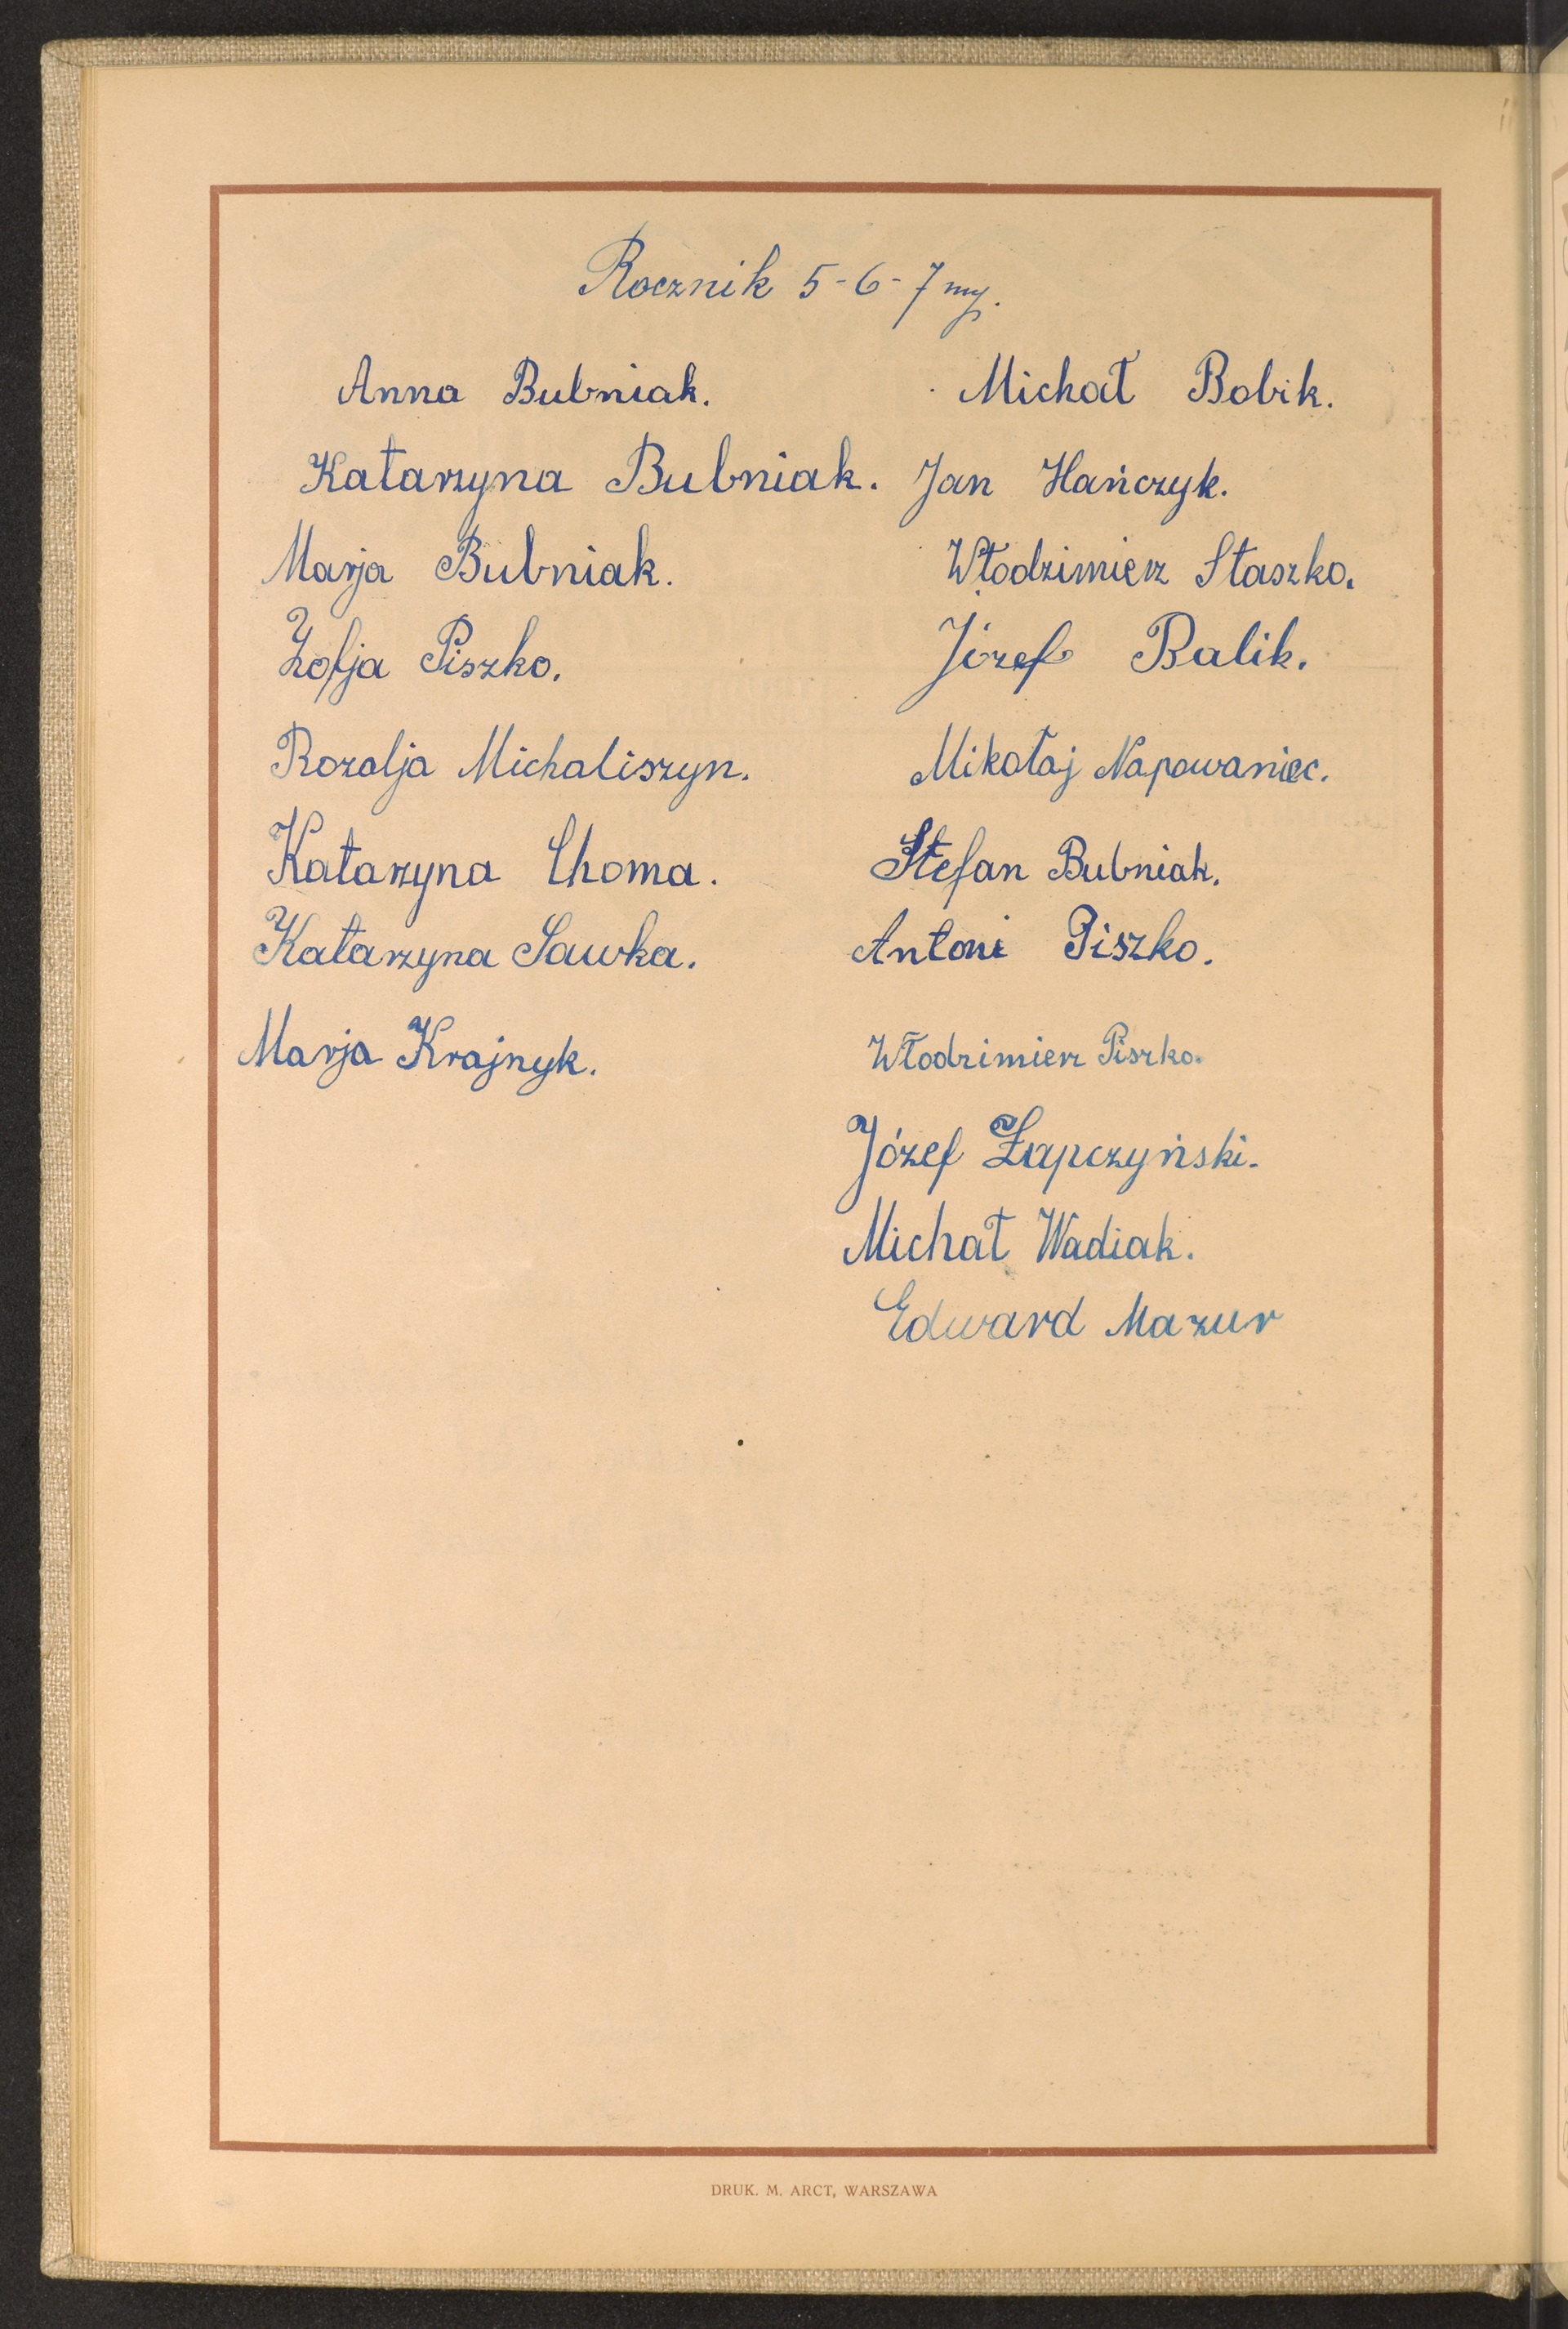 Rocznik 5-6-7my.
Anna Bubniak.
Katarzyna Bubniak.
Marja Bubniak.
Zofja Piszko.
Rozalja Michaliszyn.
Katarzyna Choma.
Katarzyna Sawka.
Marja Krajnyk.
Michał Bobik.
Jan Hańczyk.
Włodzimierz Staszko.
Józef Balik.
Mikołaj Napowaniec.
Stefan Bubniak.
Antoni Piszko.
Włodzimierz Piszko.
Józef Łapczyński.
Michał Wadiak.
Edward Mazur
DRUK. M. ARCT, WARSZAWA